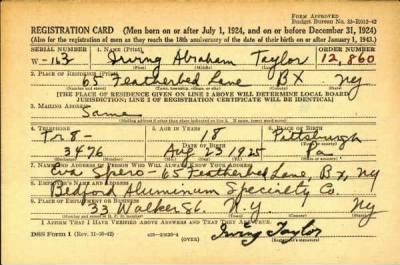 FORM APPROVED
Budget Bureau No. 33-R012-42
REGISTRATION CARD (Men born on or after July 1, 1924, and on or before December 31, 1924)
(Also for the registration of men as they reach the 18th anniversary of the date of their birth on or after January 1, 1943.)
SERIAL NUMBER 1. NAME (Print) ORDER NUMBER
W-163 Irving Abraham Taylor 12,860
2. PLACE OF RESIDENCE (Print)
65 Featherbed Lane BX NY
[THE PLACE OF RESIDENCE GIVEN ON LINE 2 ABOVE WILL DETERMINE LOCAL BOARD
JURISDICTION; LINE 2 OF REGISTRATION CERTIFICATE WILL BE IDENTICAL]
3. MAILING ADDRESS
Same
4. TELEPHONE 5. AGE IN YEARS 6. PLACE OF BIRTH
8- 18 Pittsburgh
DATE OF BIRTH
3476 Aug 23 1925 Pa
7. NAME AND ADDRESS OF PERSON WHO WILL ALWAYS KNOW YOUR ADDRESS
Eva Spero-65 Featherbed Lane, Bx, NY
8. EMPLOYER'S NAME AND ADDRESS
Bedford Aluminum Specialty Co.
9. PLACE OF EMPLOYMENT OR BUSINESS
33 Walker St. N.Y. NY
I AFFIRM THAT I HAVE VERIFIED ABOVE ANSWERS AND THAT THEY ARE TRUE.
DSS Form 1 (Rev. 11-16-42) (OVER) Irving Taylor